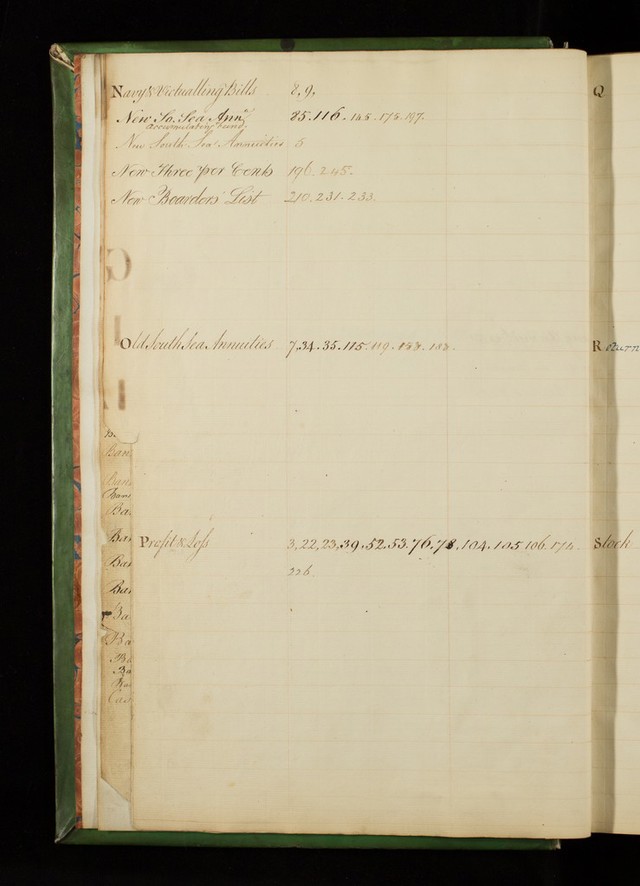 Navy & Victualling Bills 8, 9,
New So. Sea Ann.s 85. 116. 145. 175. 197.
accumulating Fund.
New South Sea Annuities 5
New Three per Cents 196. 245.
New Boarders' List 210. 231. 233.
Old South Sea Annuities 7, 34. 35. 115. 119. 183.
Profit & Loss 3, 22, 23, 39. 52. 53. 76. 78, 104. 105 106. 174.
226.
Q
R
Stock
Ban
Ban
Ba
Ban
Ban
Ba
Ba